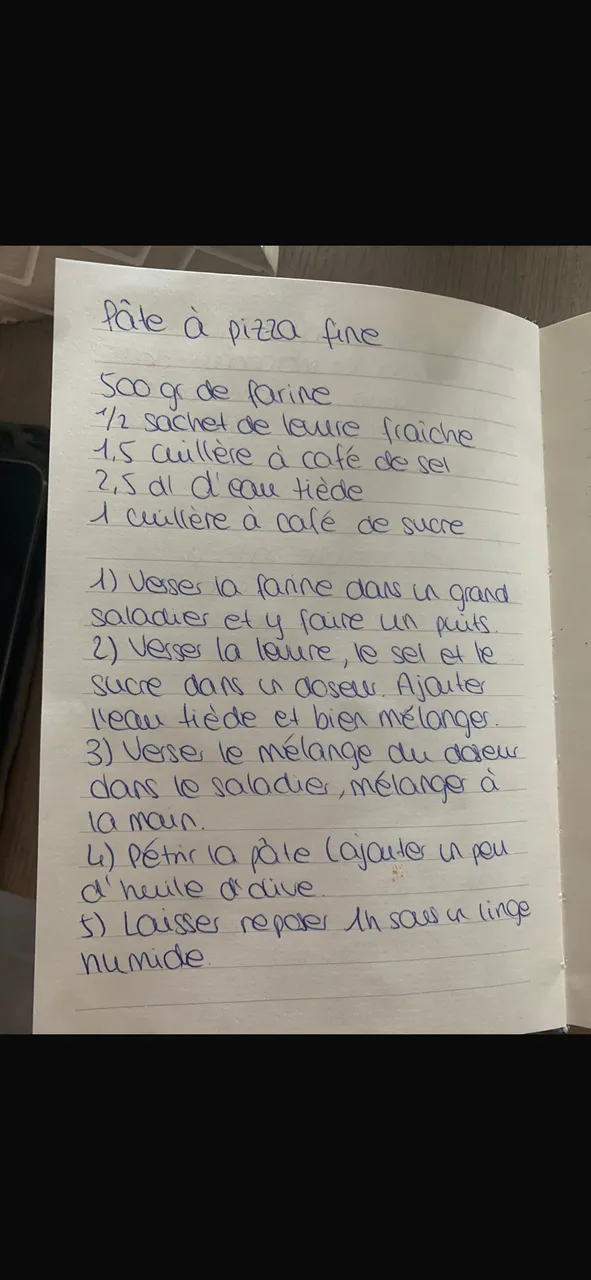 Pâte à pizza fine
500 gr de farine
1/2 sachet de levure fraiche
1,5 cuillère à café de sel
2,5 dl d'eau tiède
1 cuillère à café de sucre
1) Verser la farine dans un grand
saladier et y faire un puits.
2) Verser la levure, le sel et le
sucre dans un doseur. Ajouter
l'eau tiède et bien mélanger.
3) Verser le mélange du doseur
dans le saladier, mélanger à
la main.
4) Pétrir la pâte (ajouter un peu
d'huile d'olive.
5) Laisser reposer 1h sous un linge
humide.